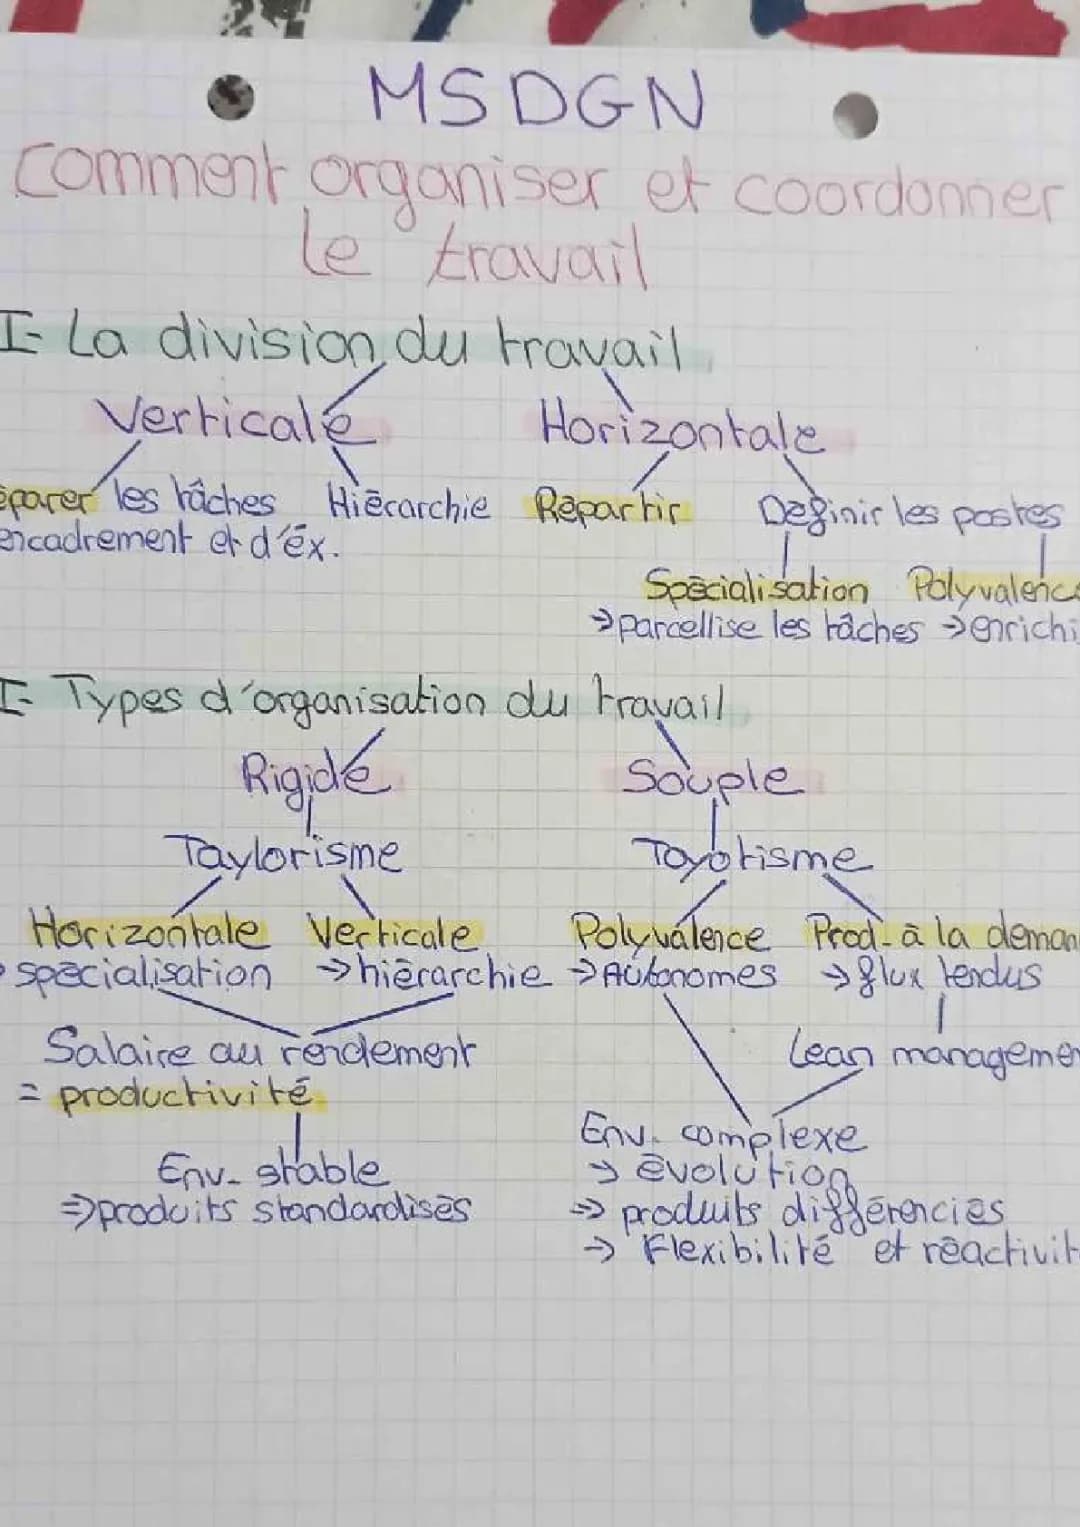 MSDGN
Comment organiser et coordonner
le travail
I- La division du travail
Verticale Horizontale
éparer les tâches Hiérarchie Répartir Définir les postes
encadrement et d'éx.
Spécialisation Polyvalence
→ parcellise les tâches → enrichi
I- Types d'organisation du travail
Rigide Souple
Taylorisme Toyotisme
Horizontale Verticale Polyvalence Prod. à la deman
spécialisation → hiérarchie → Autonomes → flux tendus
Salaire au rendement Lean managemen
= productivité
Env. complexe
Env. stable → évolution
⇒ produits standardisés ⇒ produits différenciés
→ Flexibilité et réactivit